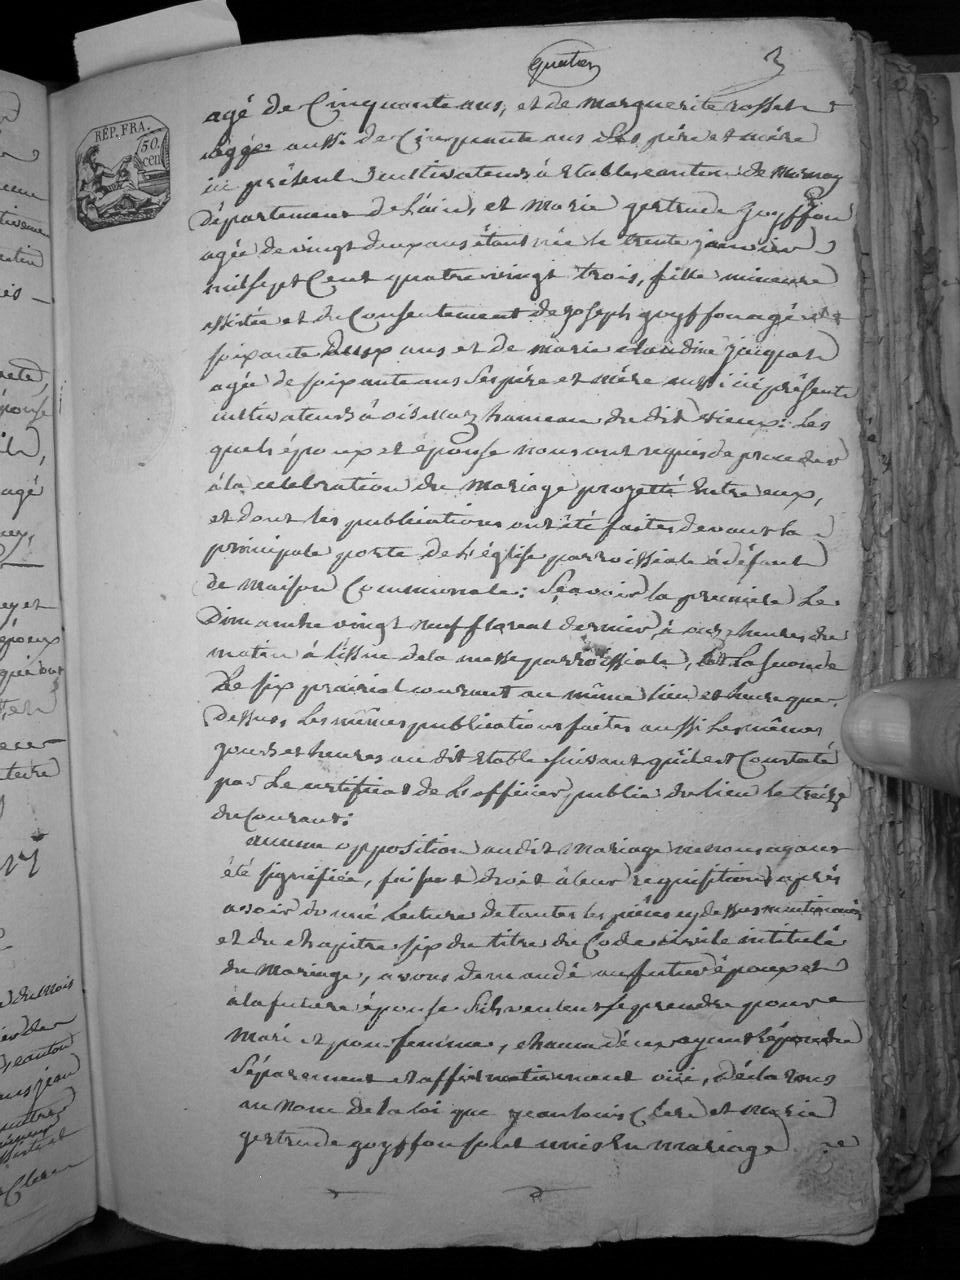 quatre 3
RÉP. FRA.
50.
cen
agé de Cinquante ans, et de marguerite rosset
agée aussi de Cinquante ans Ses père et mère
ici présents Cultivateurs à Etables canton de
Département de L'ain, et Marie gertrude goyffon
agée de vingt deux ans étant née le trente janvier
mil sept Cent quatre vingt trois, fille mineure
assistée et du Consentement de joseph goyffon agé
soixante deux ans et de marie claudine jacquet
agée de soixante ans Ses père et mère aussi ici présents
cultivateurs à hameau du dit Lieux: Les
quels époux et épouse nous ont requis de proceder
à la celebration du Mariage projetté Entre eux,
et dont les publications ont été faites devant la
principale porte de L'église parroissiale à défaut
de maison Communale: Sçavoir la premiere Le
Dimanche vingt neuf floreal dernier, à onze heures du
matin à l'issue de la messe parroissiale, et La seconde
Le six prairial courant au même lieu et heure que
dessus, Les mêmes publications faites aussi Les mêmes
jours et heures au dit Etable suivant qu'il est Constaté
par Le certificat de L'officier public du lieu le treize
du Courant:
aucune opposition audit Mariage ne nous ayant
été signifiée, faisant droit à leur requisition après
avoir donné Lecture de toutes les pièces cy dessus mentionnées
et du chapitre six du titre du Code civile intitulé
du Mariage, avons demandé au futur époux et
à la future épouse S'ils veulent se prendre pour
Mari et pour femme, chacun d'eux ayant Répondu
Séparement et affirmativement oui, déclarons
au nom de la loi que jean louis Clerc et Marie
gertrude goyffon sont unis En mariage